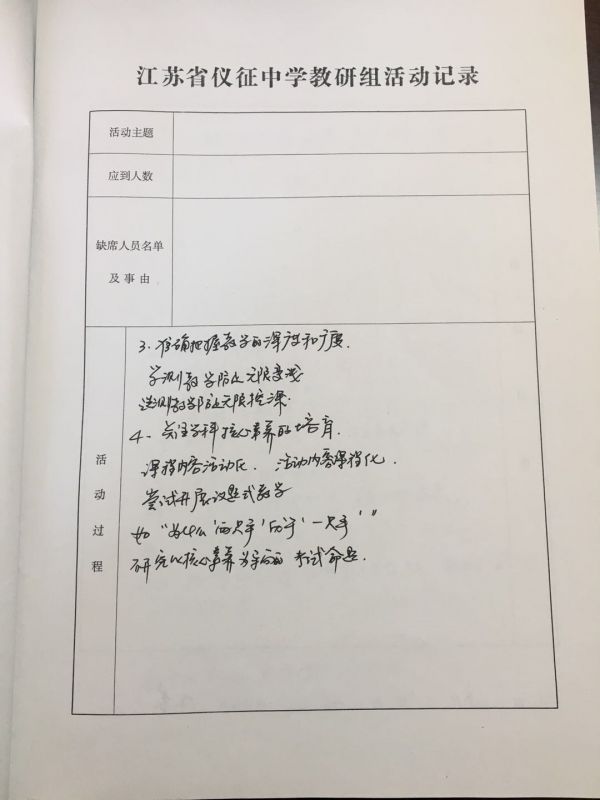 江苏省仪征中学教研组活动记录
活动主题
应到人数
缺席人员名单
及事由
活动过程
3、准确把握教学的深度和广度.
学测教学防止无限变浅
选测教学防止无限挖深.
4、关注学科核心素养的培育.
课程内容活动化. 活动内容课程化.
尝试开展议题式教学
如“为什么‘两只手’优于‘一只手’”
研究以核心素养为导向的 考试命题.